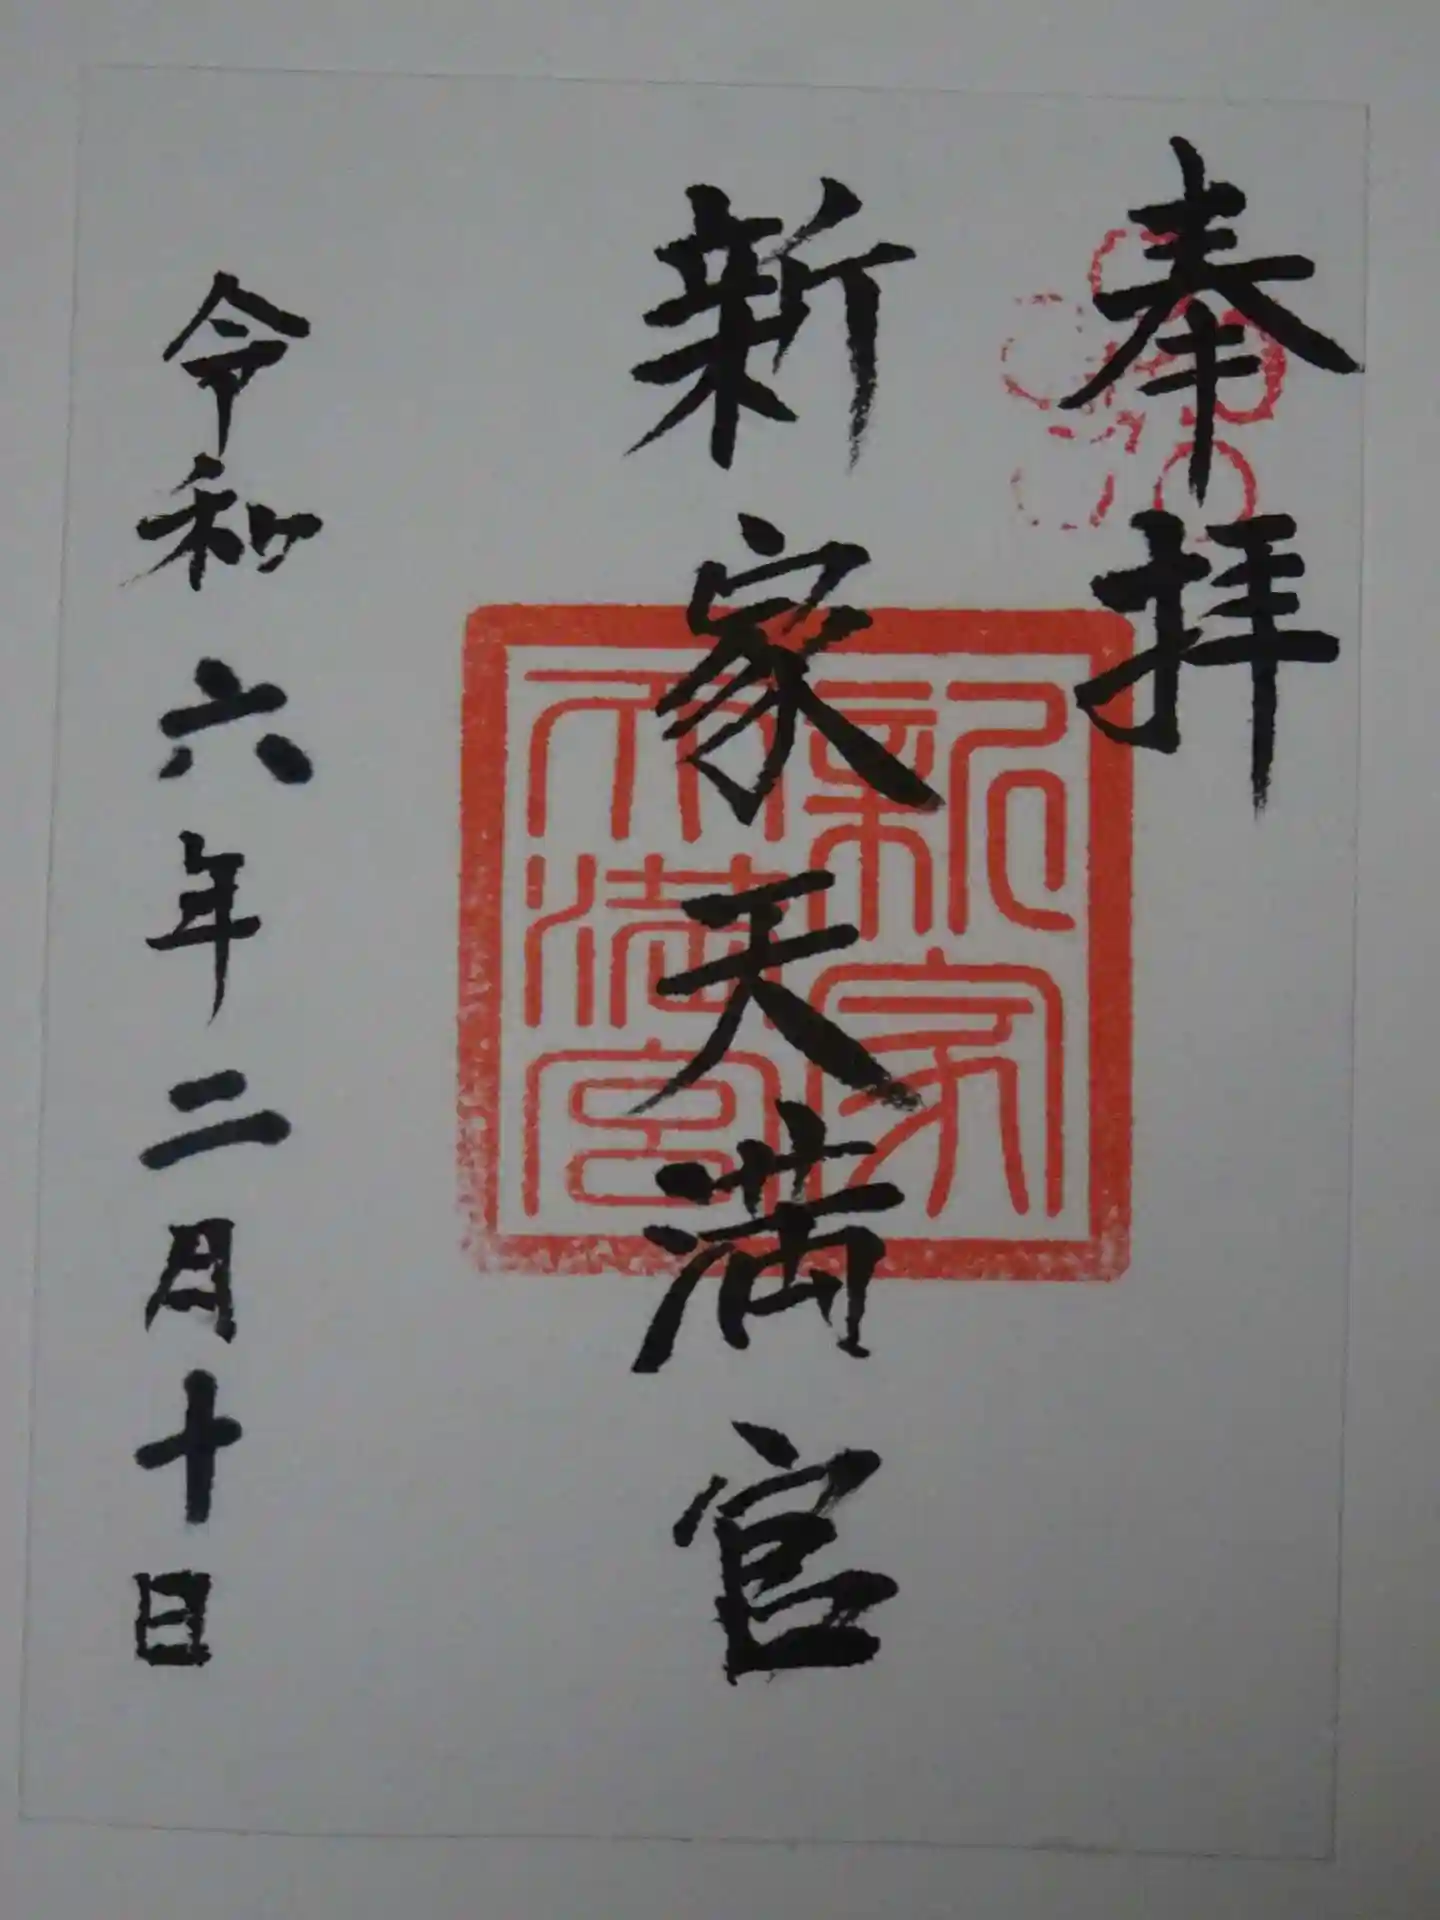 奉拝
新家天満宮
新家
天満宮
令和六年二月十日